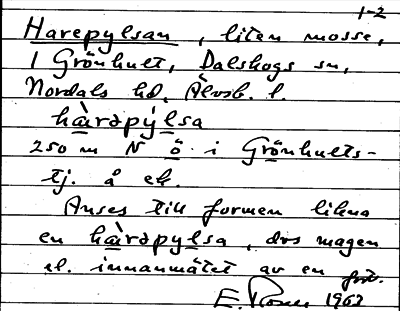 1-2
Harepylsan, liten mosse,
1 Grönhult, Dalskogs sn,
Nordals hd, Älvsb. l.
hàrapýlsa
250 m N ö. i Grönhults-
tj. å ek.
Anses till formen likna
en hàrapylsa, dvs magen
el. innanmätet av en
E. 1963